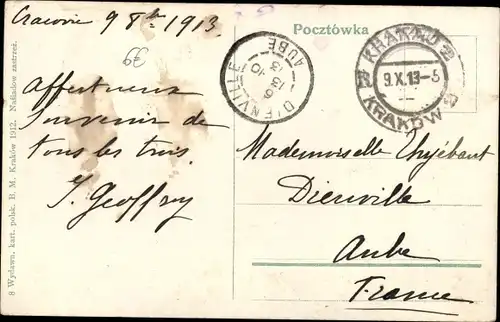 Cracovie 9 8bre 1913.
Pocztówka
Affectueux
Souvenir de
tous les trois.
J. Geoffroy
DIENVILLE
AUBE
13-10
13
KRAKAU
9.X.13-5
KRAKÓW
Mademoiselle
Dienville
Aube
France
8 Wydawn. kart. polsk. B. M. Kraków 1912. Nakładow zastrzeż.